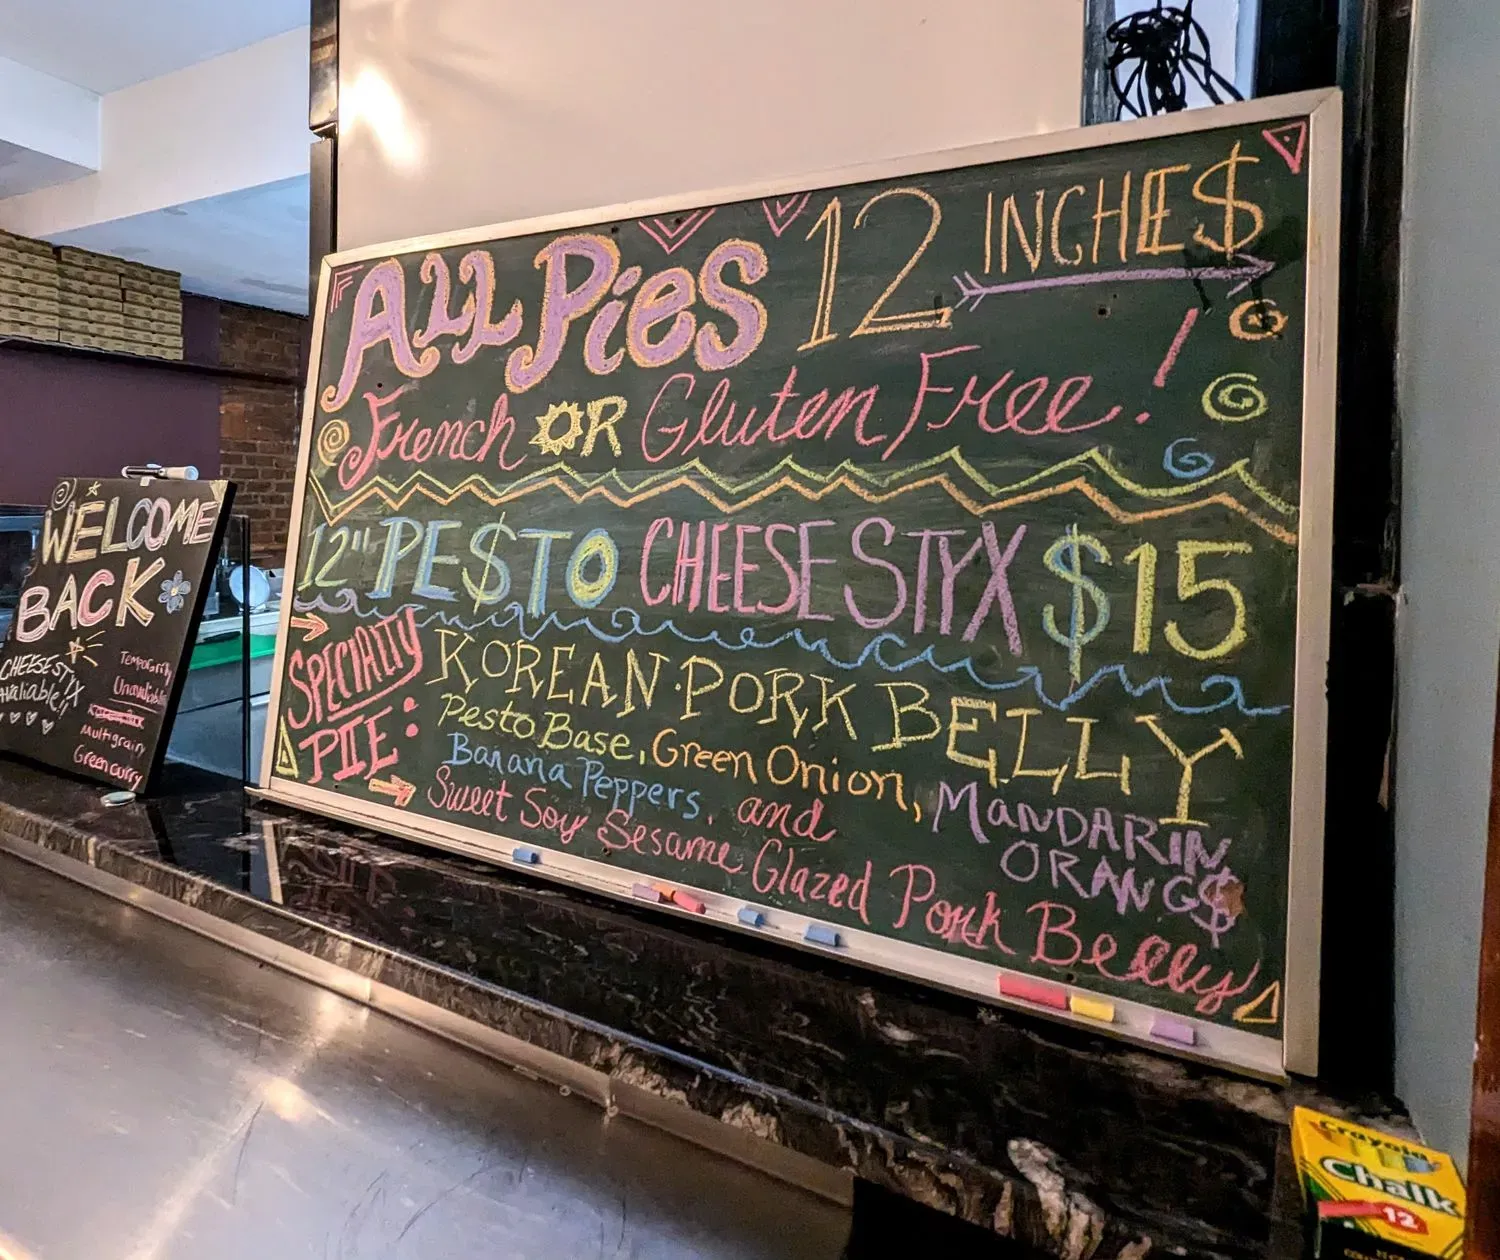 ALL PIES 12 INCHE$
French OR Gluten Free!
12" PE$TO CHEESE STYX $15
SPECIALTY PIE:
KOREAN PORK BELLY
Pesto Base, Green Onion, MANDARIN ORANG$
Banana Peppers, and
Sweet Soy Sesame Glazed Pork Belly
WELCOME
BACK
CHEESESTYX
Available!!
Temporarily
Unavailable
Multigrain
Green Curry
Crayola
Chalk
12